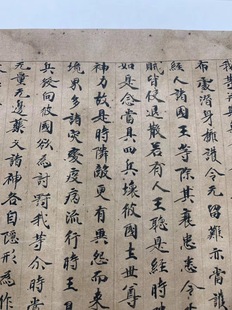 布靈潛身擁護令无留難亦當護
經人諸國王等除其衰患悉令
賊皆使退散若有人王聽是經時
如是念當具四兵壞彼國土世尊
神力故是時隣敵更有異怨而来
境界多諸灾變疫病流行時王見
兵發向彼國欲為討罰我等尒時當
无量无邊藥叉諸神各自隱形為作